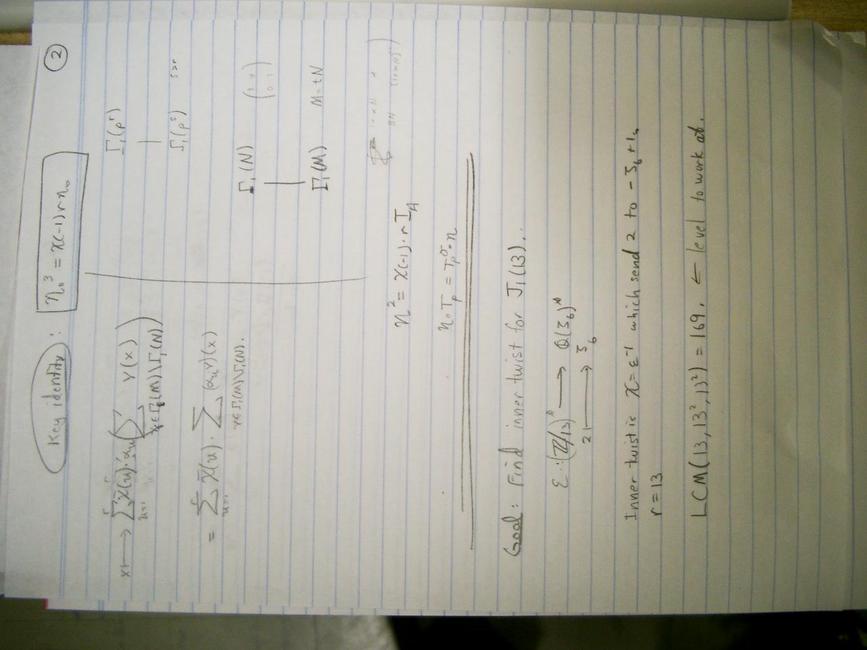 2
Key identity : η₀³ = χ(-1) r η₀
x ↦ Σ_{u=1}^{r} χ̄(u)·α_u ( Σ_{γ∈Γ₁(M)\Γ₁(N)} γ(x) )
= Σ_{u=1}^{r} χ̄(u) · Σ_{γ∈Γ₁(M)\Γ₁(N)} (α_u γ)(x)
Γ₁(p^r)
|
Γ₁(p^s) s>r
Γ₁(N)
|
Γ₁(M) M = tN
η² = χ(-1)·r I_A
η∘T_p = T_p^σ∘η
Goal: Find inner twist for J₁(13)..
ε : (ℤ/13)* ⟶ ℚ(ζ₆)*
2 ⟼ ζ₆
Inner twist is χ = ε⁻¹ which send 2 to -ζ₆+1,
r = 13
LCM(13, 13², 13²) = 169. ← level to work at.